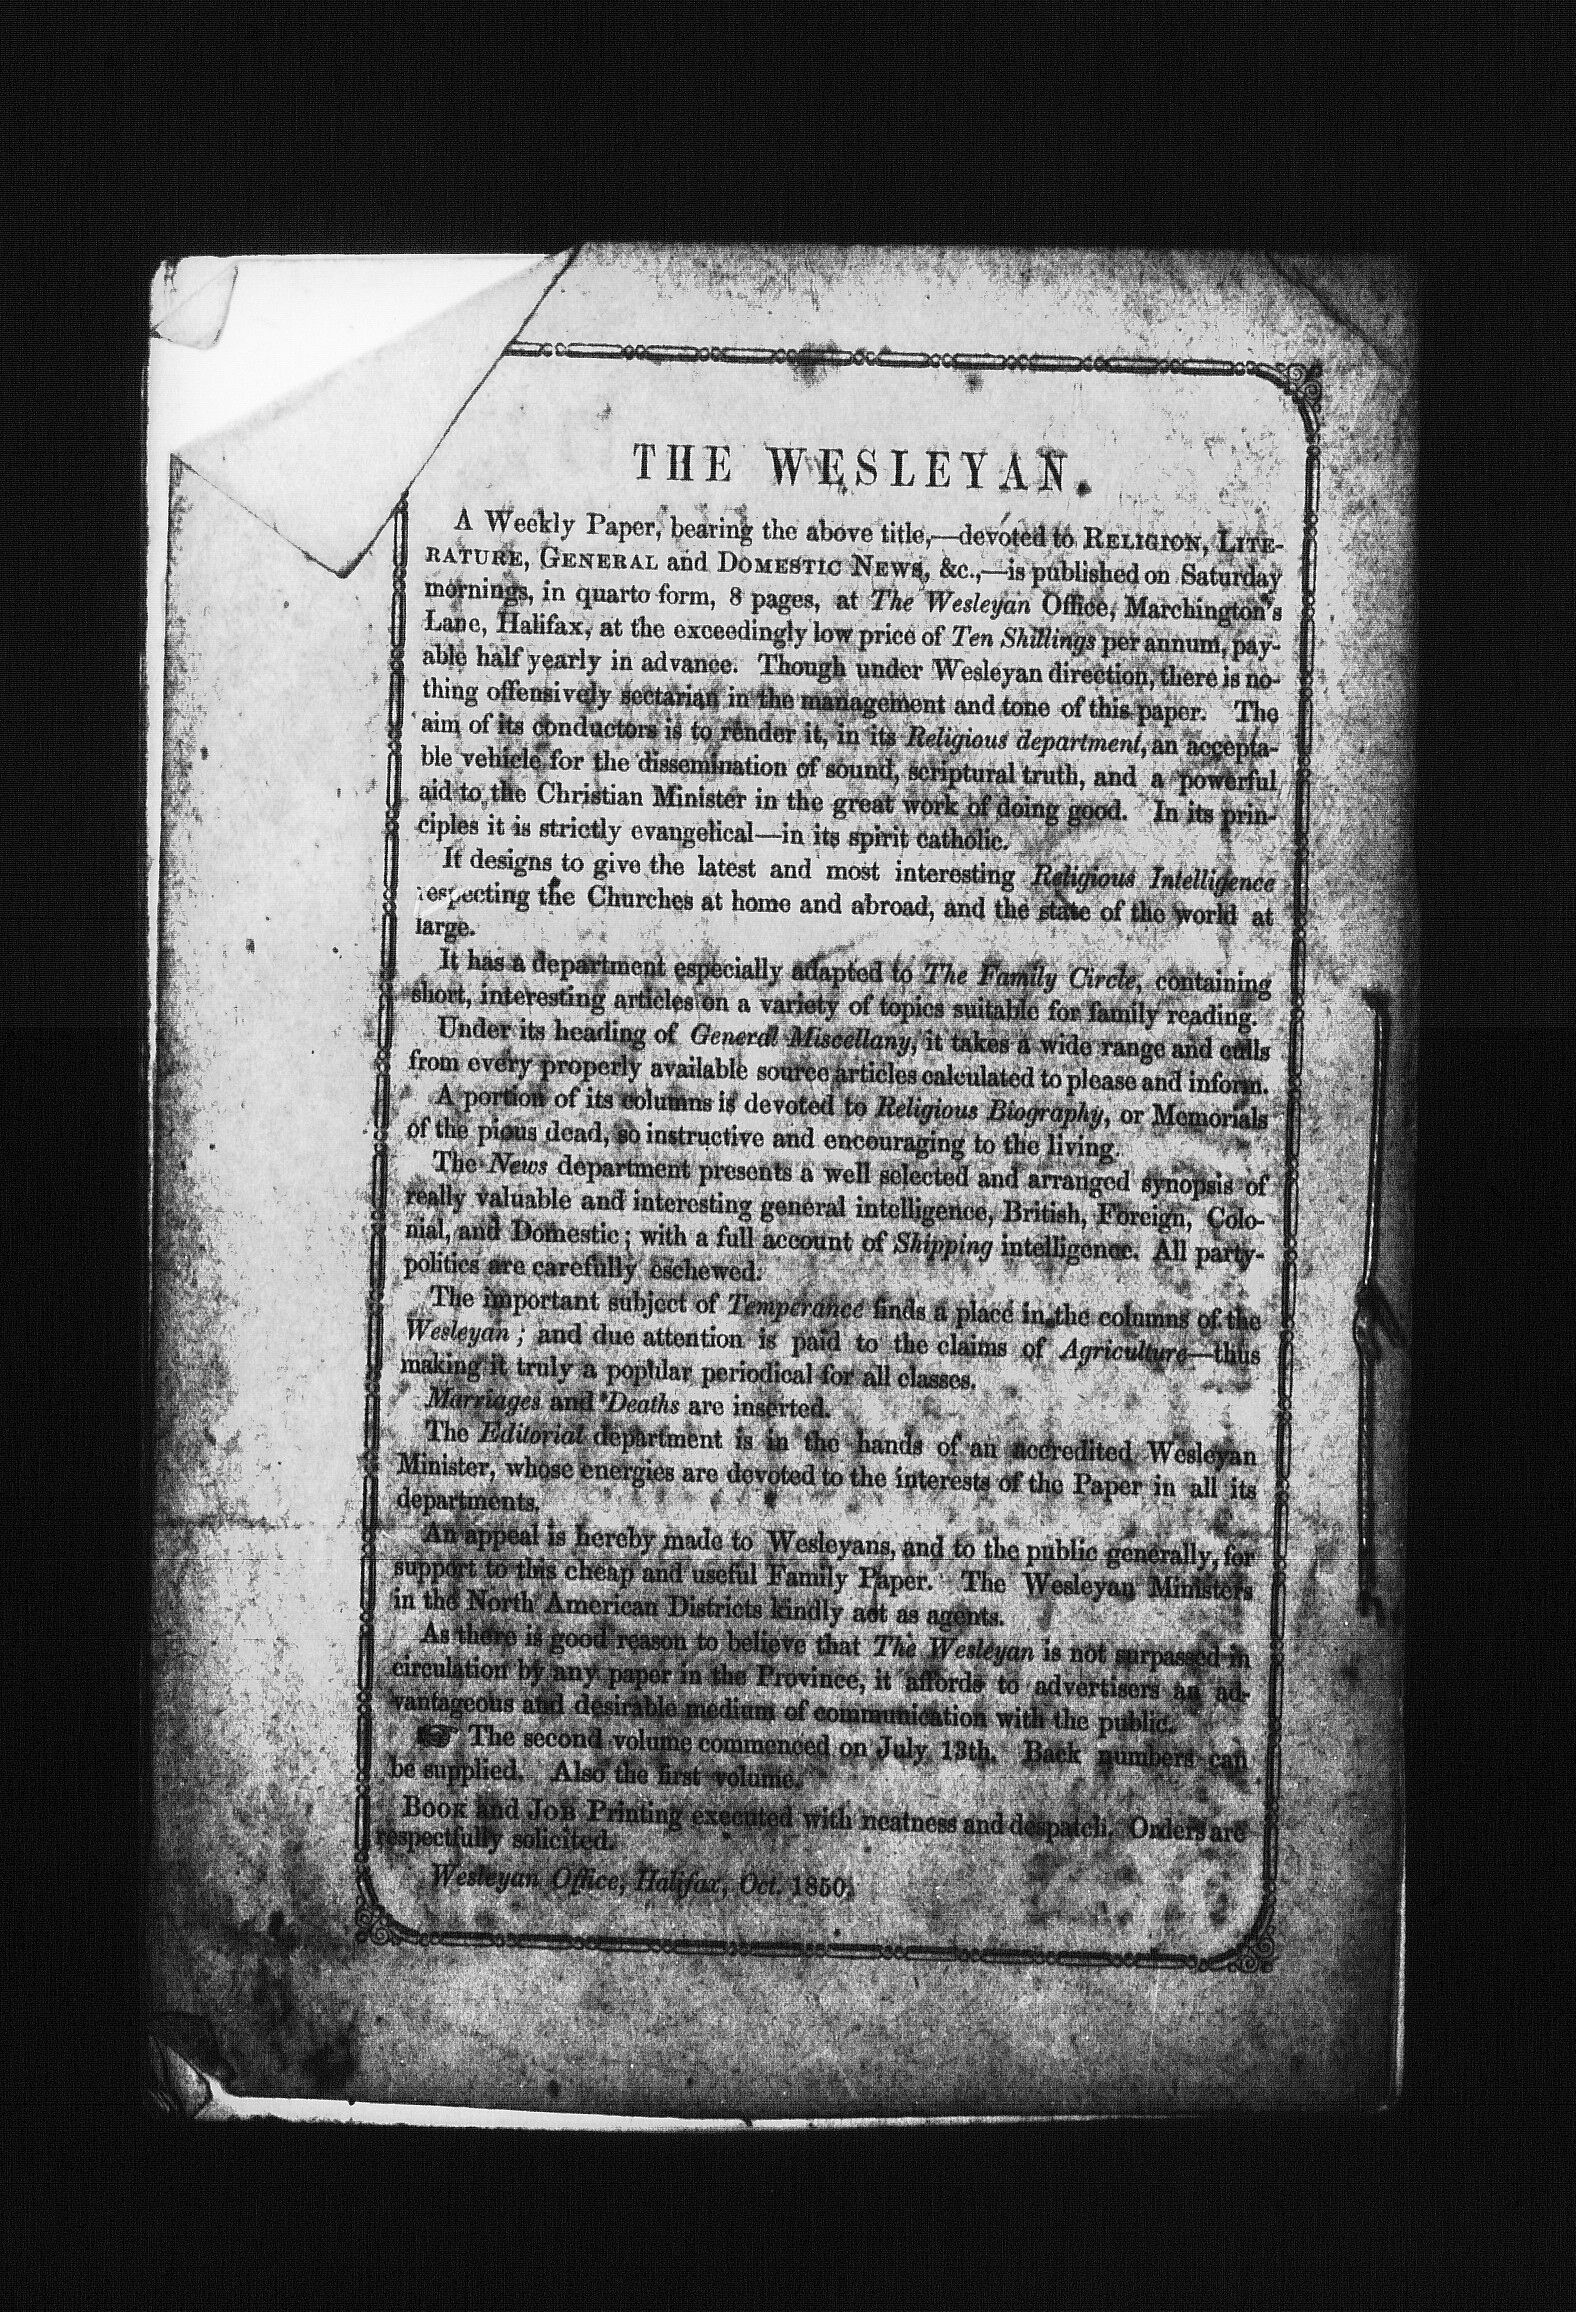 THE WESLEYAN.
A Weekly Paper, bearing the above title,—devoted to RELIGION, LITE-
RATURE, GENERAL and DOMESTIC NEWS, &c.,—is published on Saturday
mornings, in quarto form, 8 pages, at The Wesleyan Office, Marchington's
Lane, Halifax, at the exceedingly low price of Ten Shillings per annum, pay-
able half yearly in advance. Though under Wesleyan direction, there is no-
thing offensively sectarian in the management and tone of this paper. The
aim of its conductors is to render it, in its Religious department, an accepta-
ble vehicle for the dissemination of sound, scriptural truth, and a powerful
aid to the Christian Minister in the great work of doing good. In its prin-
ciples it is strictly evangelical—in its spirit catholic.
It designs to give the latest and most interesting Religious Intelligence
respecting the Churches at home and abroad, and the state of the world at
large.
It has a department especially adapted to The Family Circle, containing
short, interesting articles on a variety of topics suitable for family reading.
Under its heading of General Miscellany, it takes a wide range and culls
from every properly available source articles calculated to please and inform.
A portion of its columns is devoted to Religious Biography, or Memorials
of the pious dead, so instructive and encouraging to the living.
The News department presents a well selected and arranged synopsis of
really valuable and interesting general intelligence, British, Foreign, Colo-
nial, and Domestic; with a full account of Shipping intelligence. All party-
politics are carefully eschewed.
The important subject of Temperance finds a place in the columns of the
Wesleyan; and due attention is paid to the claims of Agriculture—thus
making it truly a popular periodical for all classes.
Marriages and Deaths are inserted.
The Editorial department is in the hands of an accredited Wesleyan
Minister, whose energies are devoted to the interests of the Paper in all its
departments.
An appeal is hereby made to Wesleyans, and to the public generally, for
support to this cheap and useful Family Paper. The Wesleyan Ministers
in the North American Districts kindly act as agents.
As there is good reason to believe that The Wesleyan is not surpassed in
circulation by any paper in the Province, it affords to advertisers an ad-
vantageous and desirable medium of communication with the public.
☞ The second volume commenced on July 13th. Back numbers can
be supplied. Also the first volume.
BOOK and JOB Printing executed with neatness and despatch. Orders are
respectfully solicited.
Wesleyan Office, Halifax, Oct. 1850.